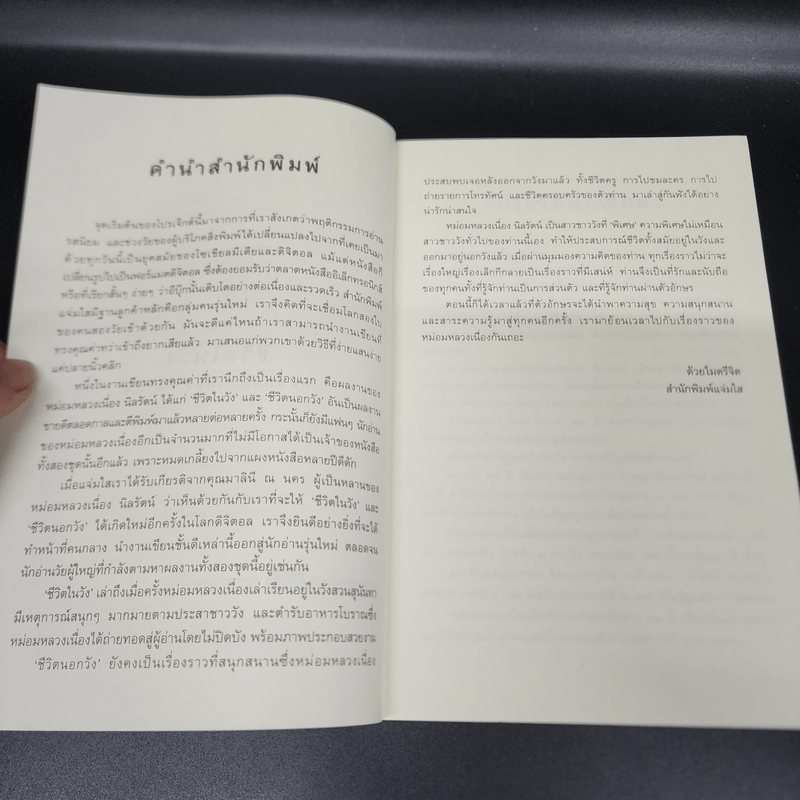 คำนำสำนักพิมพ์
จุดเริ่มต้นของโปรเจ็กต์นี้มาจากการที่เราสังเกตว่าพฤติกรรมการอ่าน
รสนิยม และช่วงวัยของผู้บริโภคสิ่งพิมพ์ได้เปลี่ยนแปลงไปจากที่เคยเป็นมา
ด้วยทุกวันนี้เป็นยุคสมัยของโซเชียลมีเดียและดิจิตอล แม้แต่หนังสือก็
เปลี่ยนรูปไปเป็นฟอร์แมตดิจิตอล ซึ่งต้องยอมรับว่าตลาดหนังสืออิเล็กทรอนิกส์
หรือที่เรียกสั้นๆ ง่ายๆ ว่าอีบุ๊กนั้นเติบโตอย่างต่อเนื่องและรวดเร็ว สำนักพิมพ์
แจ่มใสมีฐานลูกค้าหลักคือกลุ่มคนรุ่นใหม่ เราจึงคิดที่จะเชื่อมโลกสองใบ
ของคนสองวัยเข้าด้วยกัน มันจะดีแค่ไหนถ้าเราสามารถนำงานเขียนที่
ทรงคุณค่าทว่าเข้าถึงยากเสียแล้ว มาเสนอแก่พวกเขาด้วยวิธีที่ง่ายแสนง่าย
แค่ปลายนิ้วคลิก
หนึ่งในงานเขียนทรงคุณค่าที่เรานึกถึงเป็นเรื่องแรก คือผลงานของ
หม่อมหลวงเนื่อง นิลรัตน์ ได้แก่ ‘ชีวิตในวัง’ และ ‘ชีวิตนอกวัง’ อันเป็นผลงาน
ขายดีตลอดกาลและตีพิมพ์มาแล้วหลายต่อหลายครั้ง กระนั้นก็ยังมีแฟนๆ นักอ่าน
ของหม่อมหลวงเนื่องอีกเป็นจำนวนมากที่ไม่มีโอกาสได้เป็นเจ้าของหนังสือ
ทั้งสองชุดนั้นอีกแล้ว เพราะหมดเกลี้ยงไปจากแผงหนังสือหลายปีดีดัก
เมื่อแจ่มใสเราได้รับเกียรติจากคุณมาลินี ณ นคร ผู้เป็นหลานของ
หม่อมหลวงเนื่อง นิลรัตน์ ว่าเห็นด้วยกันกับเราที่จะให้ ‘ชีวิตในวัง’ และ
‘ชีวิตนอกวัง’ ได้เกิดใหม่อีกครั้งในโลกดิจิตอล เราจึงยินดีอย่างยิ่งที่จะได้
ทำหน้าที่คนกลาง นำงานเขียนชั้นดีเหล่านี้ออกสู่นักอ่านรุ่นใหม่ ตลอดจน
นักอ่านวัยผู้ใหญ่ที่กำลังตามหาผลงานทั้งสองชุดนี้อยู่เช่นกัน
‘ชีวิตในวัง’ เล่าถึงเมื่อครั้งหม่อมหลวงเนื่องเล่าเรียนอยู่ในวังสวนสุนันทา
มีเหตุการณ์สนุกๆ มากมายตามประสาชาววัง และตำรับอาหารโบราณซึ่ง
หม่อมหลวงเนื่องได้ถ่ายทอดสู่ผู้อ่านโดยไม่ปิดบัง พร้อมภาพประกอบสวยงาม
‘ชีวิตนอกวัง’ ยังคงเป็นเรื่องราวที่สนุกสนานซึ่งหม่อมหลวงเนื่อง
ประสบพบเจอหลังออกจากวังมาแล้ว ทั้งชีวิตครู การไปชมละคร การไป
ถ่ายรายการโทรทัศน์ และชีวิตครอบครัวของตัวท่าน มาเล่าสู่กันฟังได้อย่าง
น่ารักน่าสนใจ
หม่อมหลวงเนื่อง นิลรัตน์ เป็นสาวชาววังที่ ‘พิเศษ’ ความพิเศษไม่เหมือน
สาวชาววังทั่วไปของท่านนี้เอง ทำให้ประสบการณ์ชีวิตทั้งสมัยอยู่ในวังและ
ออกมาอยู่นอกวังแล้ว เมื่อผ่านมุมมองความคิดของท่าน ทุกเรื่องราวไม่ว่าจะ
เรื่องใหญ่เรื่องเล็กก็กลายเป็นเรื่องราวที่มีเสน่ห์ ท่านจึงเป็นที่รักและนับถือ
ของทุกคนทั้งที่รู้จักท่านเป็นการส่วนตัว และที่รู้จักท่านผ่านตัวอักษร
ตอนนี้ก็ได้เวลาแล้วที่ตัวอักษรจะได้นำพาความสุข ความสนุกสนาน
และสาระความรู้มาสู่ทุกคนอีกครั้ง เรามาย้อนเวลาไปกับเรื่องราวของ
หม่อมหลวงเนื่องกันเถอะ
ด้วยไมตรีจิต
สำนักพิมพ์แจ่มใส